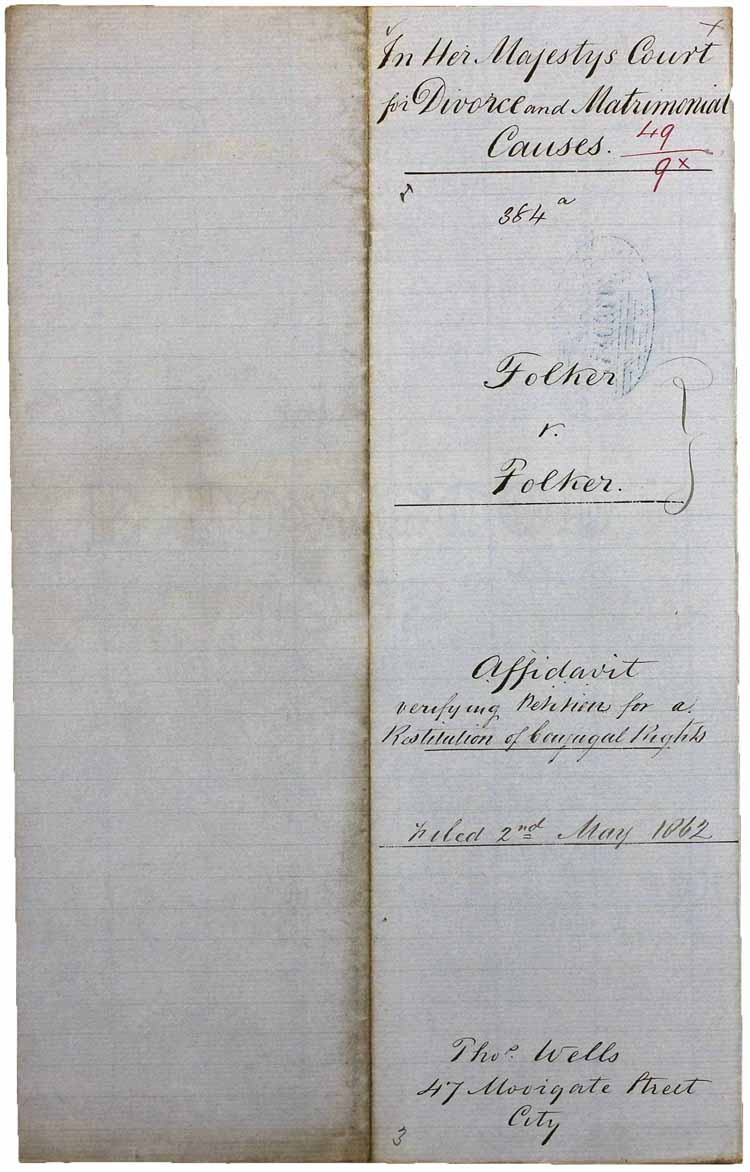 x
In Her Majestys Court
for Divorce and Matrimonial
Causes.
49
9x
384a
Folker
v.
Folker.
Affidavit
verifying Petition for a
Restitution of Conjugal Rights
Filed 2nd May 1862
Thos. Wells
47 Moorgate Street
City
3